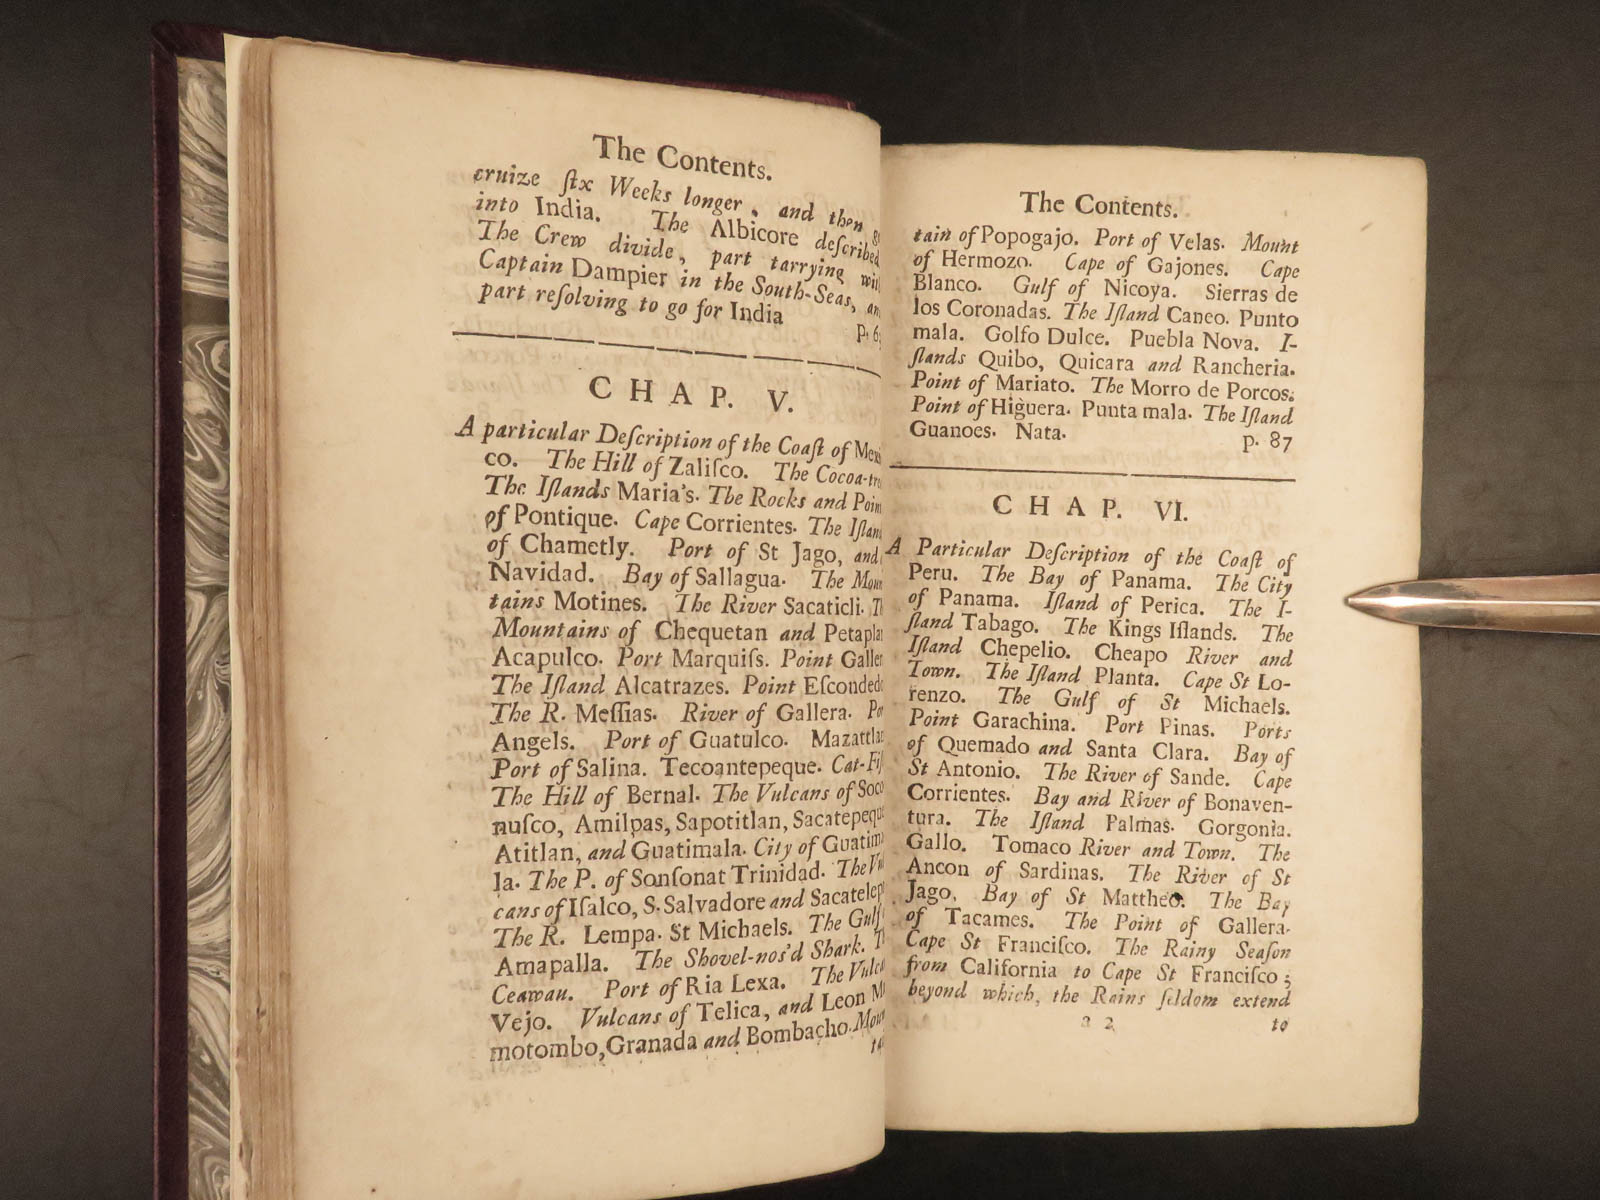 The Contents.
cruize ſix Weeks longer, and then g
into India. The Albicore deſcribed
The Crew divide, part tarrying wit
Captain Dampier in the South-Seas, an
part reſolving to go for India
p. 6
CHAP. V.
A particular Deſcription of the Coaſt of Mexi
co. The Hill of Zaliſco. The Cocoa-tre
The Iſlands Maria's. The Rocks and Poin
of Pontique. Cape Corrientes. The Iſlan
of Chametly. Port of St Jago, and
Navidad. Bay of Sallagua. The Moun
tains Motines. The River Sacaticli. T
Mountains of Chequetan and Petaplan
Acapulco. Port Marquiſs. Point Galler
The Iſland Alcatrazes. Point Eſcondedo
The R. Meſſias. River of Gallera. Por
Angels. Port of Guatulco. Mazattlan
Port of Salina. Tecoantepeque. Cat-Fiſ
The Hill of Bernal. The Vulcans of Soco
nuſco, Amilpas, Sapotitlan, Sacatepequ
Atitlan, and Guatimala. City of Guatima
la. The P. of Sonſonat Trinidad. The Vul
cans of Iſalco, S. Salvadore and Sacatelep
The R. Lempa. St Michaels. The Gulf
Amapalla. The Shovel-nos'd Shark. T
Ceawau. Port of Ria Lexa. The Vulca
Vejo. Vulcans of Telica, and Leon M
motombo, Granada and Bombacho. Moun
ta
The Contents.
tain of Popogajo. Port of Velas. Mount
of Hermozo. Cape of Gajones. Cape
Blanco. Gulf of Nicoya. Sierras de
los Coronadas. The Iſland Caneo. Punto
mala. Golfo Dulce. Puebla Nova. I-
ſlands Quibo, Quicara and Rancheria.
Point of Mariato. The Morro de Porcos.
Point of Higuera. Punta mala. The Iſland
Guanoes. Nata. p. 87
CHAP. VI.
A Particular Deſcription of the Coaſt of
Peru. The Bay of Panama. The City
of Panama. Iſland of Perica. The I-
ſland Tabago. The Kings Iſlands. The
Iſland Chepelio. Cheapo River and
Town. The Iſland Planta. Cape St Lo-
renzo. The Gulf of St Michaels.
Point Garachina. Port Pinas. Ports
of Quemado and Santa Clara. Bay of
St Antonio. The River of Sande. Cape
Corrientes. Bay and River of Bonaven-
tura. The Iſland Palmas. Gorgonia.
Gallo. Tomaco River and Town. The
Ancon of Sardinas. The River of St
Jago, Bay of St Mattheo. The Bay
of Tacames. The Point of Gallera.
Cape St Franciſco. The Rainy Seaſon
from California to Cape St Franciſco;
beyond which, the Rains ſeldom extend
a 2 to